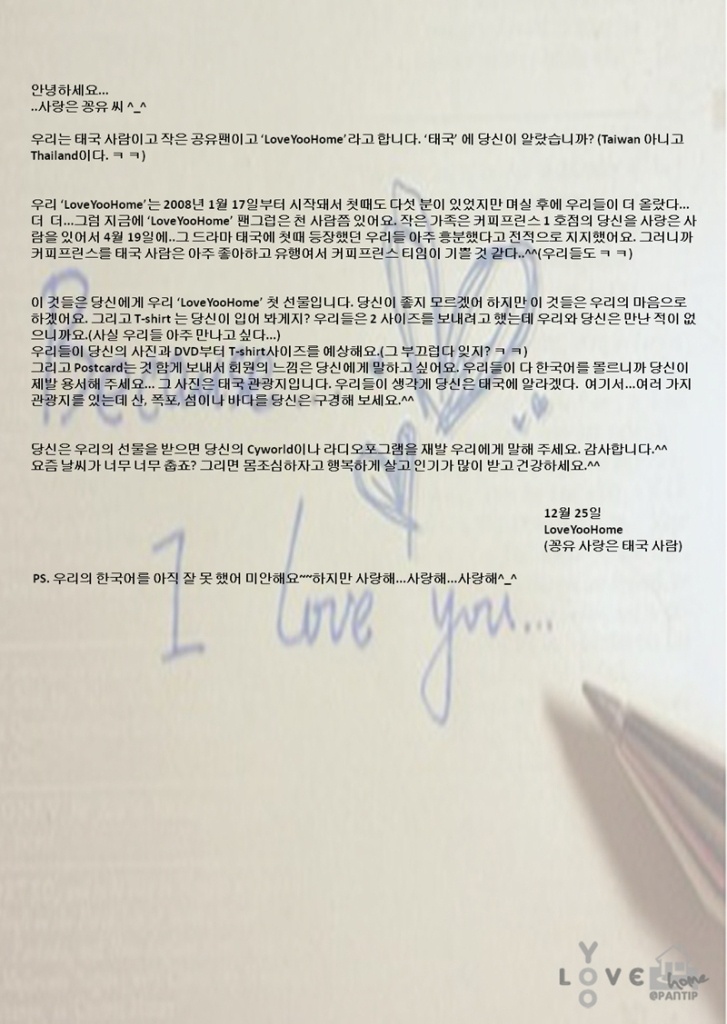 안녕하세요...
..사랑은 꽁유 씨 ^_^
우리는 태국 사람이고 작은 공유팬이고 ‘LoveYooHome’라고 합니다. ‘태국’ 에 당신이 알랐습니까? (Taiwan 아니고
Thailand이다. ㅋ ㅋ)
우리 ‘LoveYooHome’는 2008년 1월 17일부터 시작돼서 첫때도 다섯 분이 있었지만 며칠 후에 우리들이 더 올랐다...
더 더...그럼 지금에 ‘LoveYooHome’ 팬그럽은 천 사람쯤 있어요. 작은 가족은 커피프린스 1 호점의 당신을 사랑은 사
람을 있어서 4월 19일에..그 드라마 태국에 첫때 등장했던 우리들 아주 흥분했다고 전적으로 지지했어요. 그러니까
커피프린스를 태국 사람은 아주 좋아하고 유행여서 커피프린스 티임이 기쁠 것 같다..^^(우리들도 ㅋ ㅋ)
이 것들은 당신에게 우리 ‘LoveYooHome’ 첫 선물입니다. 당신이 좋지 모르겠어 하지만 이 것들은 우리의 마음으로
하겠어요. 그리고 T-shirt 는 당신이 입어 봐게지? 우리들은 2 사이즈를 보내려고 했는데 우리와 당신은 만난 적이 없
으니까요.(사실 우리들 아주 만나고 싶다...)
우리들이 당신의 사진과 DVD부터 T-shirt사이즈를 예상해요.(그 부끄럽다 잊지? ㅋ ㅋ)
그리고 Postcard는 것 함게 보내서 회원의 느낌은 당신에게 말하고 싶어요. 우리들이 다 한국어를 몰르니까 당신이
제발 용서해 주세요... 그 사진은 태국 관광지입니다. 우리들이 생각게 당신은 태국에 알라겠다. 여기서...여러 가지
관광지를 있는데 산, 폭포, 섬이나 바다를 당신은 구경해 보세요.^^
당신은 우리의 선물을 받으면 당신의 Cyworld이나 라디오포그램을 재발 우리에게 말해 주세요. 감사합니다.^^
요즘 날씨가 너무 너무 춥죠? 그리면 몸조심하자고 행복하게 살고 인기가 많이 받고 건강하세요.^^
12월 25일
LoveYooHome
(꽁유 사랑은 태국 사람)
PS. 우리의 한국어를 아직 잘 못 했어 미안해요~~하지만 사랑해...사랑해...사랑해^_^
I love you...
YOO
LOVE home
@PANTIP